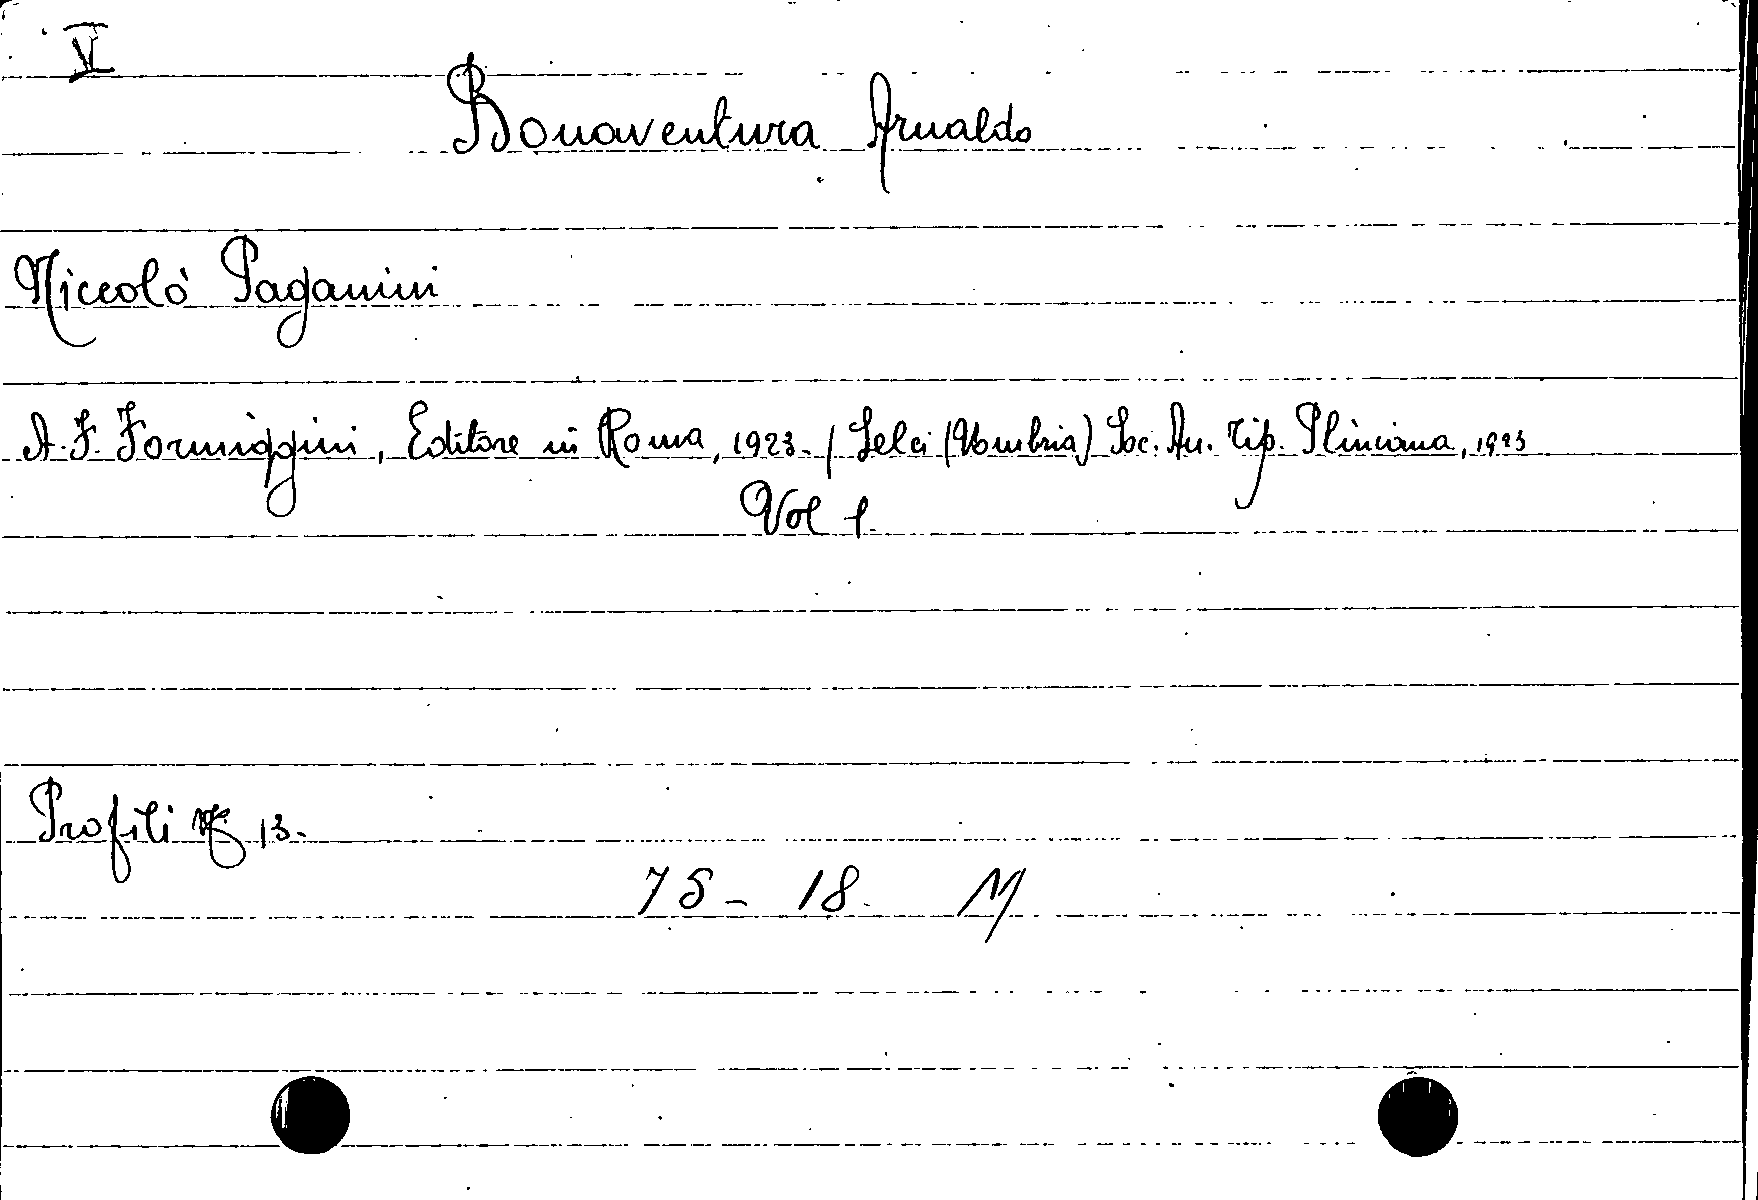 V
Bonaventura Arnaldo
Niccolò Paganini
A. F. Formiggini, Editore in Roma, 1923. / Selci (Umbria) Soc. An. Tip. Pliniana, 1923
Vol 1.
Profili Nº 13.
75 - 18. M